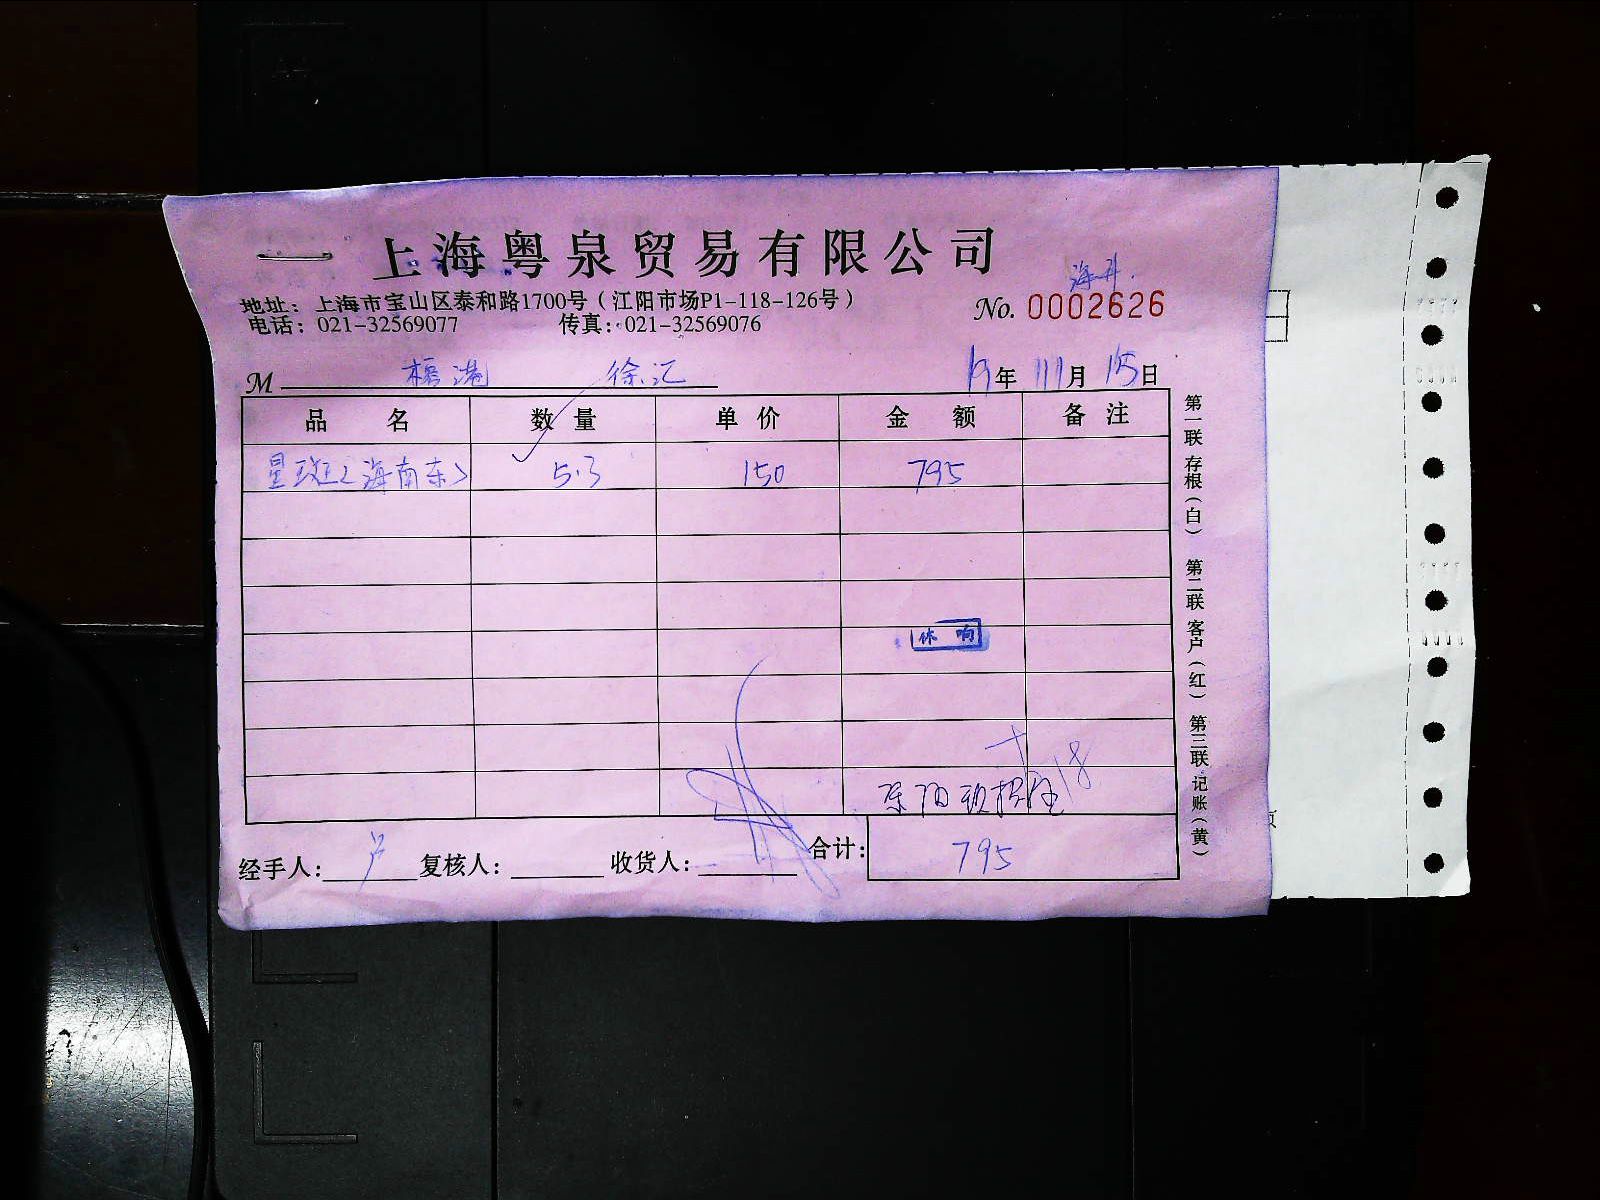 上海粤泉贸易有限公司
海升
地址：上海市宝山区泰和路1700号（江阳市场P1-118-126号）
No. 0002626
电话：021-32569077 传真：021-32569076
M 徐汇 19年 11月 15日
品名 数量 单价 金额 备注
星斑（海南东） 5.3 150 795
18
合计：795
经手人：卢 复核人： 收货人：
第一联 存根（白） 第二联 客户（红） 第三联 记账（黄）